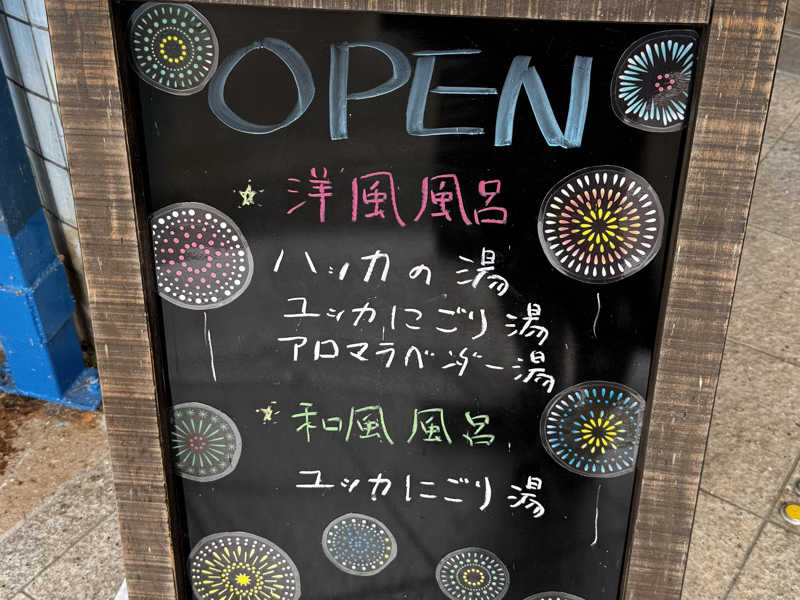 OPEN
洋風風呂
ハッカの湯
ユッカにごり湯
アロマラベンダー湯
和風風呂
ユッカにごり湯